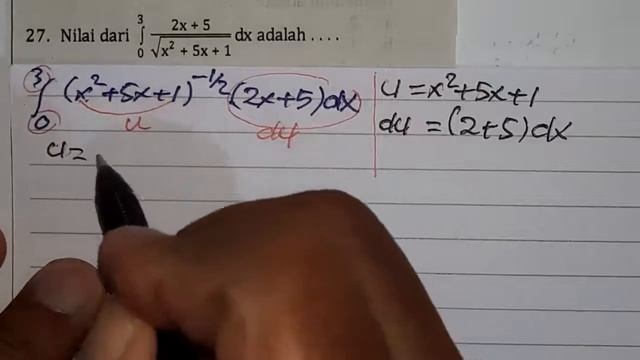 27. Nilai dari ∫₀³ (2x + 5)/√(x² + 5x + 1) dx adalah . . . .
∫₀³ (x²+5x+1)^(-1/2) (2x+5) dx
u du
u =
u = x²+5x+1
du = (2+5) dx